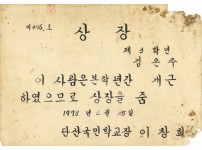 상장
제 3 학년
김은주
이 사람은 본 학년간 개근
하였으므로 상장을 줌
1978 년 2 월 15일
단산국민학교장 이창희